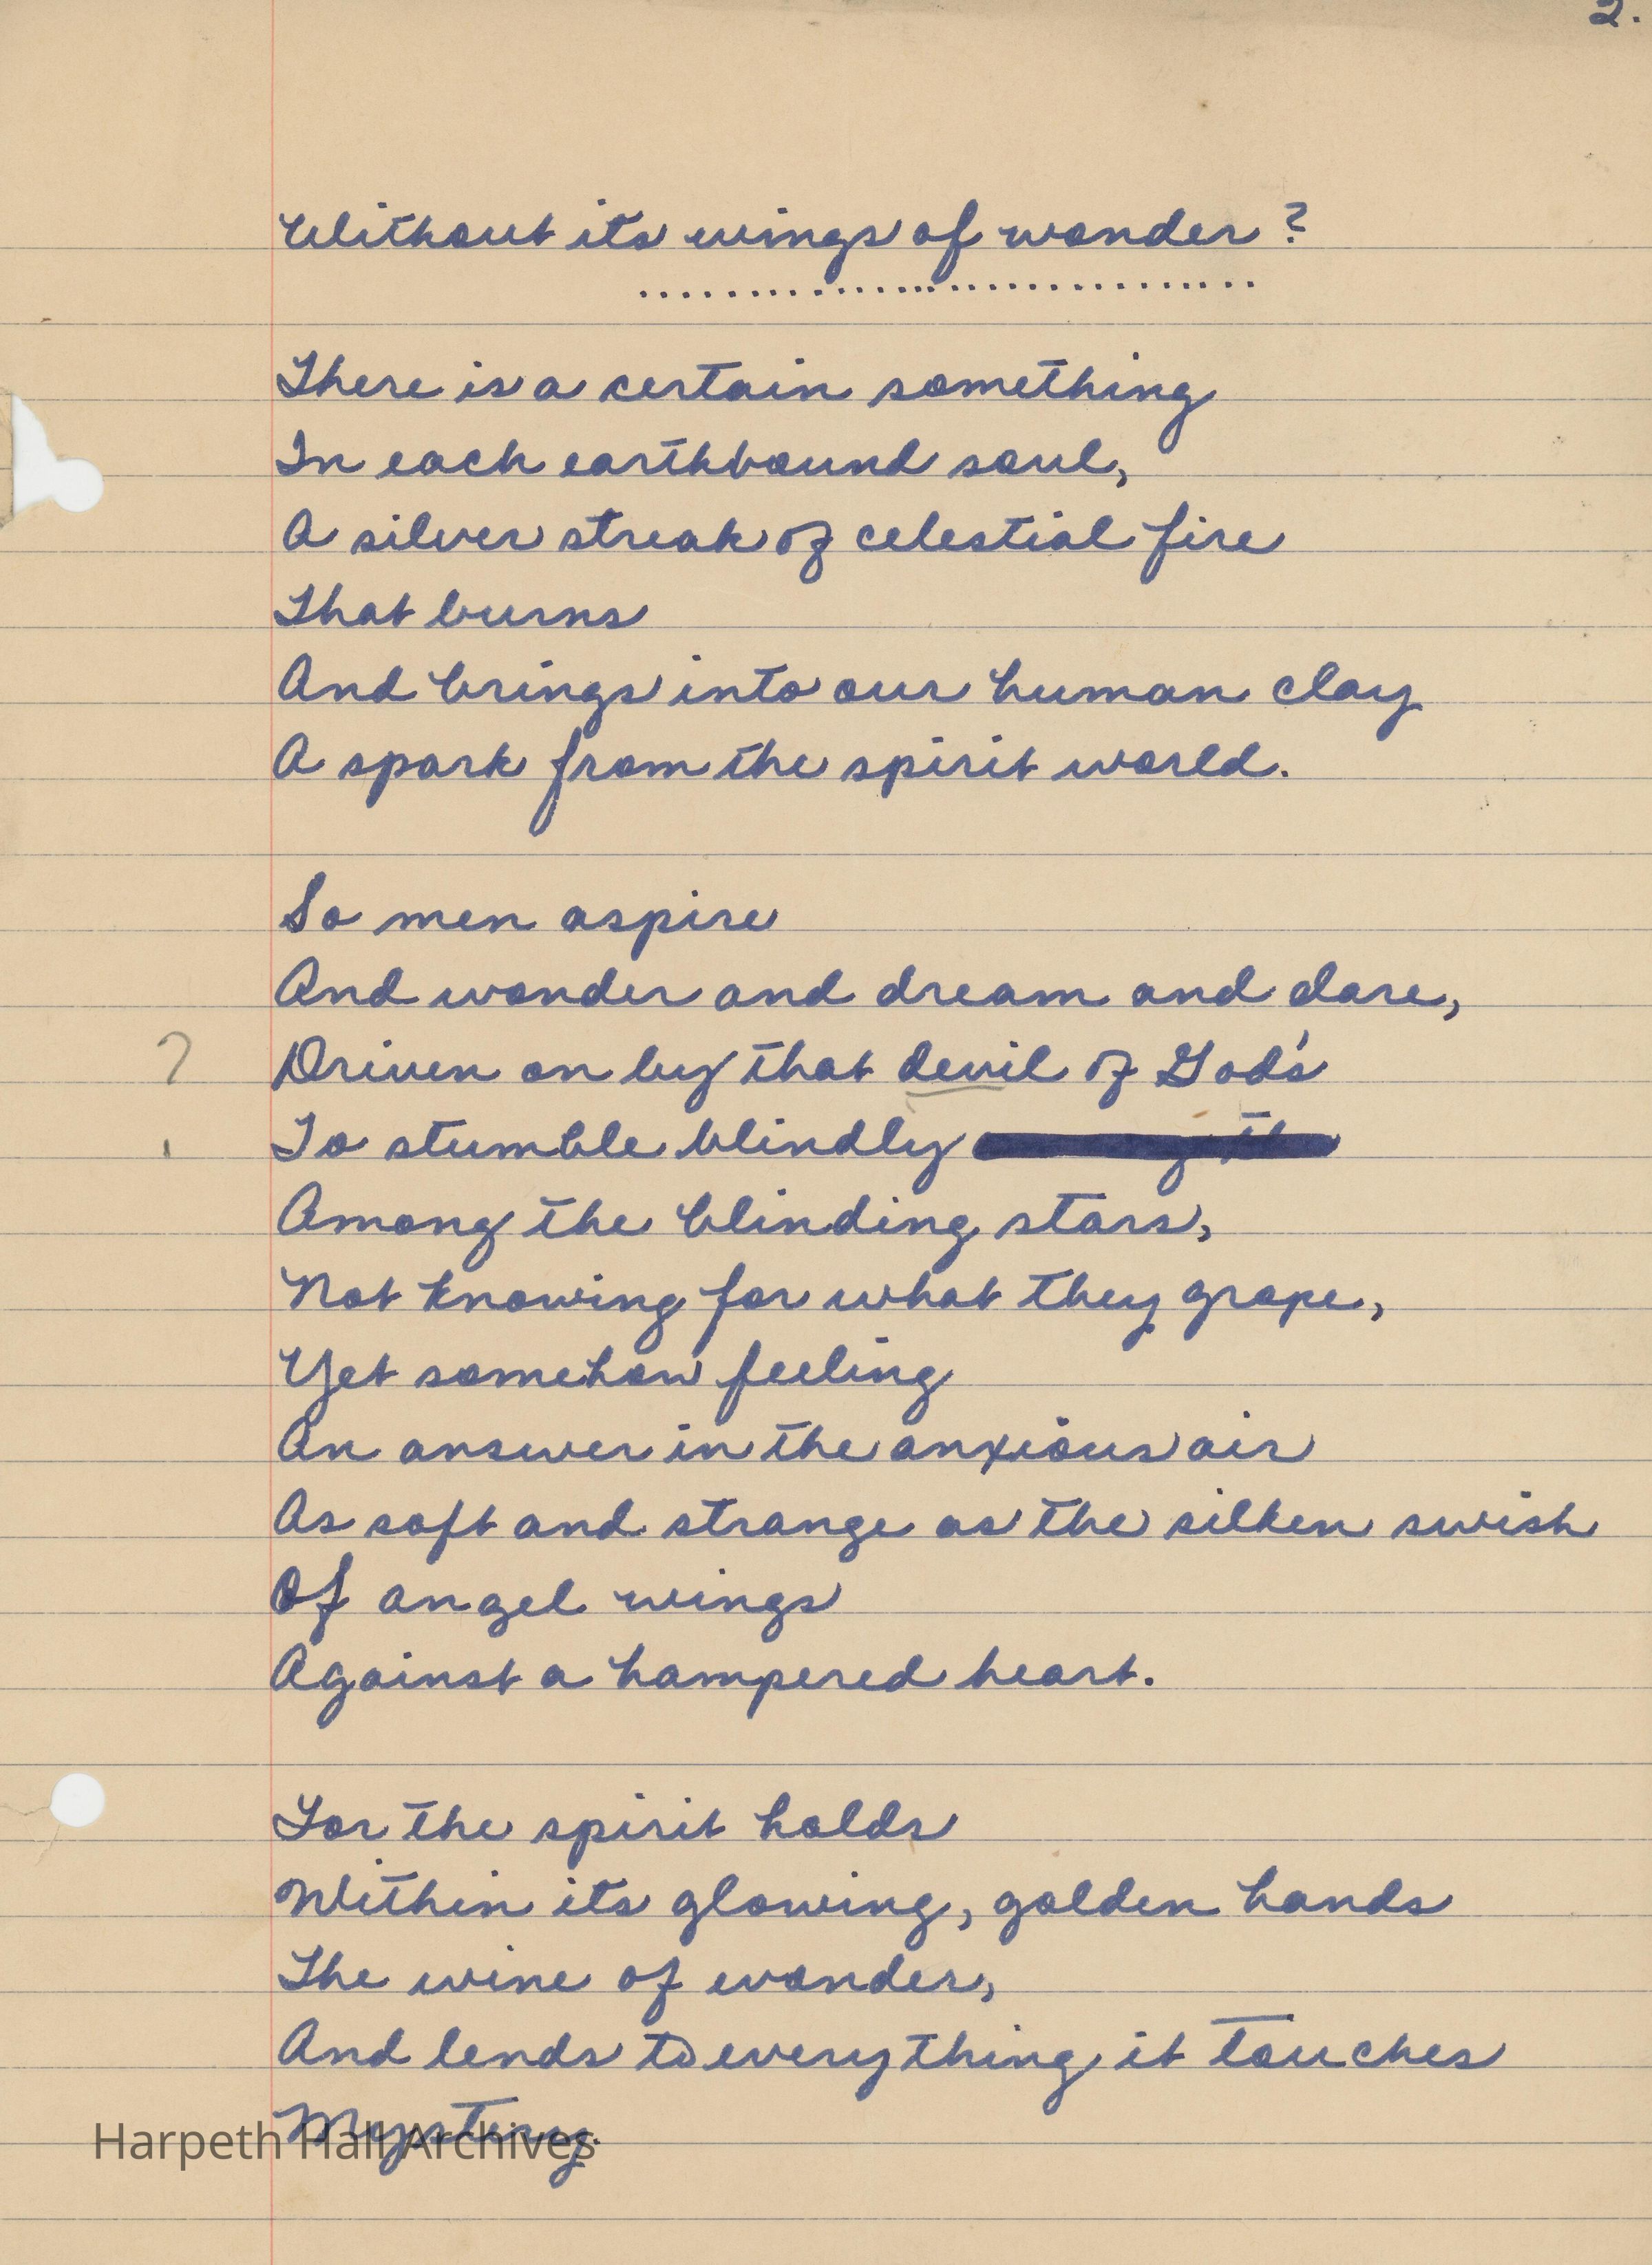 2.
Without its wings of wonder?
.................................
There is a certain something
In each earthbound soul,
A silver streak of celestial fire
That burns
And brings into our human clay
A spark from the spirit world.
So men aspire
And wonder and dream and dare,
? Driven on by that devil of God's
To stumble blindly
Among the blinding stars,
Not knowing for what they grope,
Yet somehow feeling
An answer in the anxious air
As soft and strange as the silken swish
Of angel wings
Against a hampered heart.
For the spirit holds
Within its glowing, golden hands
The wine of wonder,
And lends to everything it touches
Mystery.
Harpeth Hall Archives